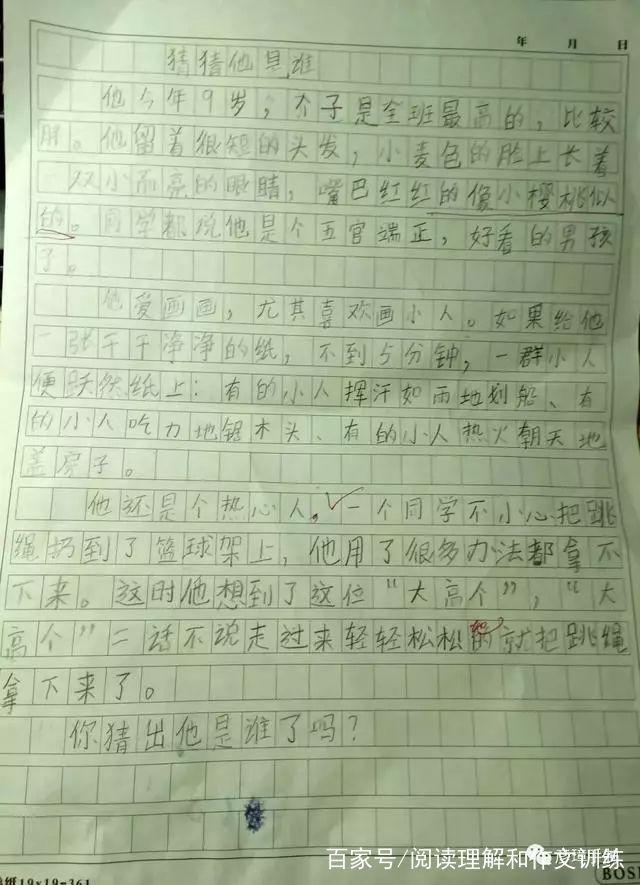 年 月 日
猜猜他是谁
他今年9岁，个子是全班最高的，比较
胖。他留着很短的头发，小麦色的脸上长着
一双小而亮的眼睛，嘴巴红红的像小樱桃似
的。同学都说他是个五官端正，好看的男孩
子。
他爱画画，尤其喜欢画小人。如果给他
一张干干净净的纸，不到5分钟，一群小人
便跃然纸上：有的小人挥汗如雨地划船、有
的小人吃力地锯木头、有的小人热火朝天地
盖房子。
他还是个热心人。一个同学不小心把跳
绳扔到了篮球架上，他用了很多办法都拿不
下来。这时他想到了这位“大高个”，“大
高个”二话不说走过来轻轻松松的就把跳绳
拿下来了。
你猜出他是谁了吗？
百家号/阅读理解和作文训练
纸19×19=361
BOSI